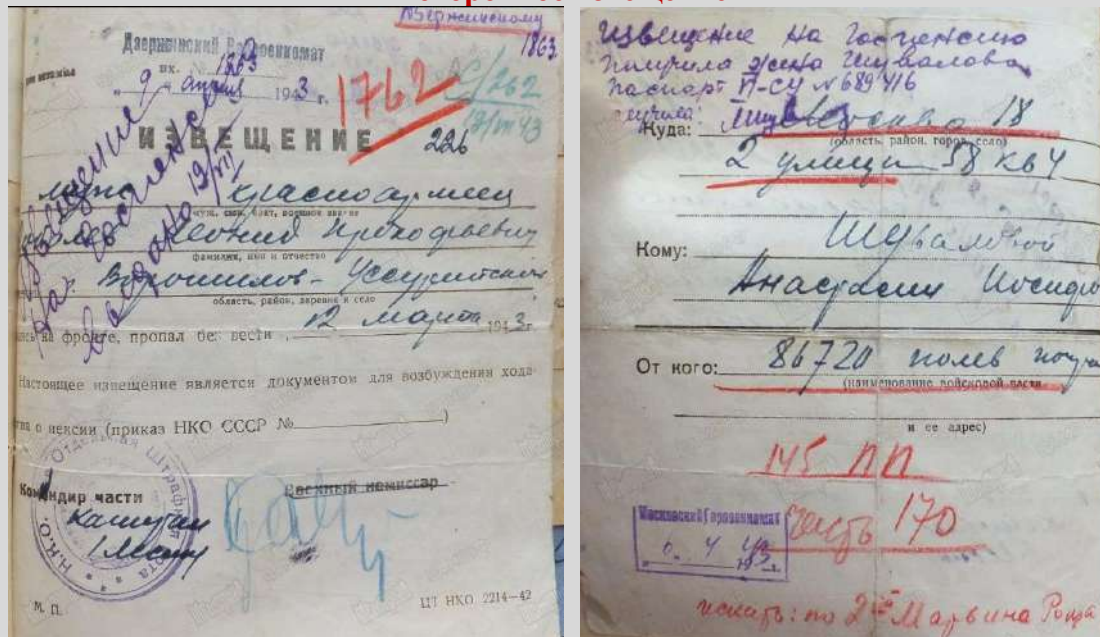 Дзержинскому
1863
Дзержинский Райвоенкомат
вх. 1863
„9“ апреля 1943 г.
1762
ИЗВЕЩЕНИЕ 226
Извещение
на госпенсию
выдано 19/VII
муж красноармеец
муж, сын, брат, военное звание
Леонид Прокофьевич
фамилия, имя и отчество
Ворошилов-Уссурийский
область, район, деревня и село
на фронте, пропал без вести 12 марта 1943 г.
Настоящее извещение является документом для возбуждения хода-
о пенсии (приказ НКО СССР №)
Отдельная Штрафная рота Н.К.О.
Командир части
Военный комиссар
М. П.
ЦТ НКО 2214—42
Извещение на госпенсию
получила жена Шувалова
паспорт II-СУ № 689416
Куда: Москва 18
(область, район, город, село)
2 улица 58 кв 4
Кому: Шуваловой
Анастасии
От кого: 86720 полев
(наименование войсковой части
и ее адрес)
145 ПП
Часть 170
Московский Горвоенкомат
4 43
искать: по 2ой Марьина Роща